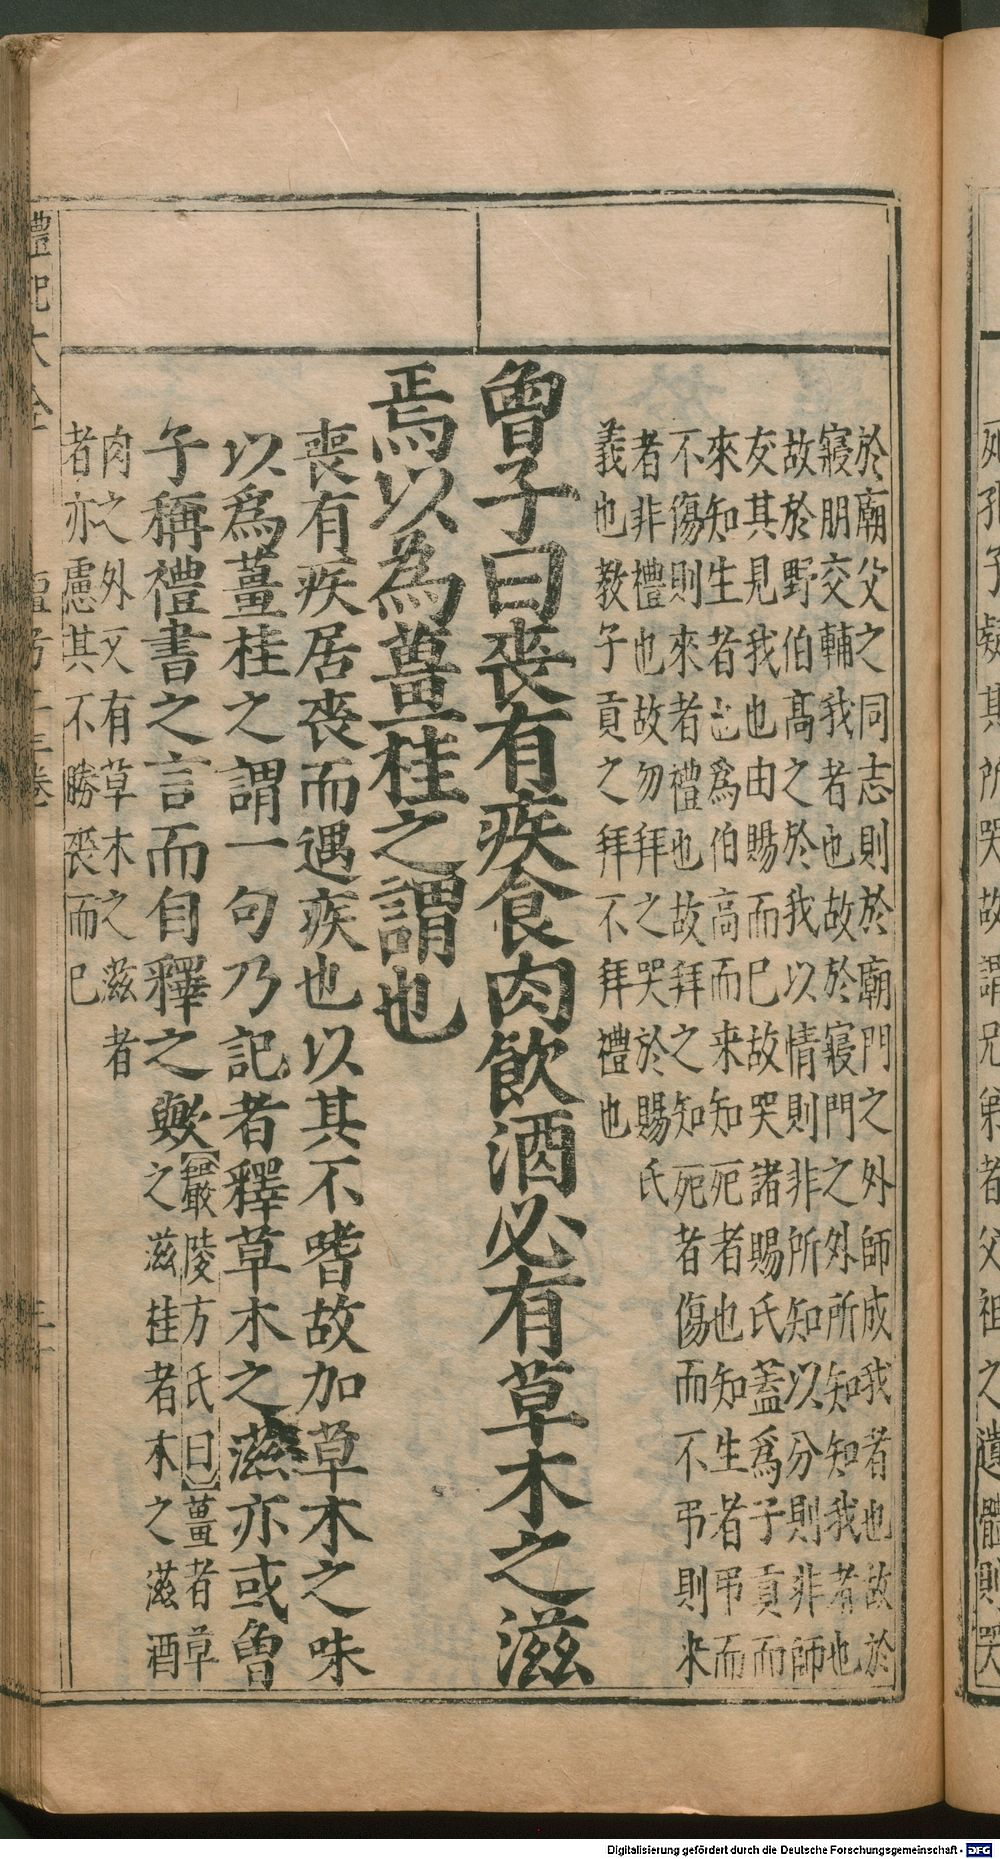 孔子疑其所哭故謂兄弟者父祖之遺體則哭
於廟父之同志則於廟門之外師成我者也故於
寢朋交輔我者也故於寢門之外所知知我者也
故於野伯高之於我以情則非所知以分則非師
友其見我也由賜而已故哭諸賜氏蓋爲子貢而
來知生者也爲伯高而来知死者也知生者弔而
不傷則來者禮也故拜之知死者傷而不弔則来
者非禮也故勿拜之哭於賜氏
義也教子貢之拜不拜禮也
曾子曰喪有疾食肉飲酒必有草木之滋
焉以為薑桂之謂也
喪有疾居喪而遇疾也以其不嗜故加草木之味
以爲薑桂之謂一句乃記者釋草木之滋亦或曾
子稱禮書之言而自釋之歟【嚴陵方氏曰】薑者草
之滋桂者木之滋酒
肉之外又有草木之滋者
者亦慮其不勝喪而已
禮記大全 檀弓上三卷
Digitalisierung gefördert durch die Deutsche Forschungsgemeinschaft - DFG